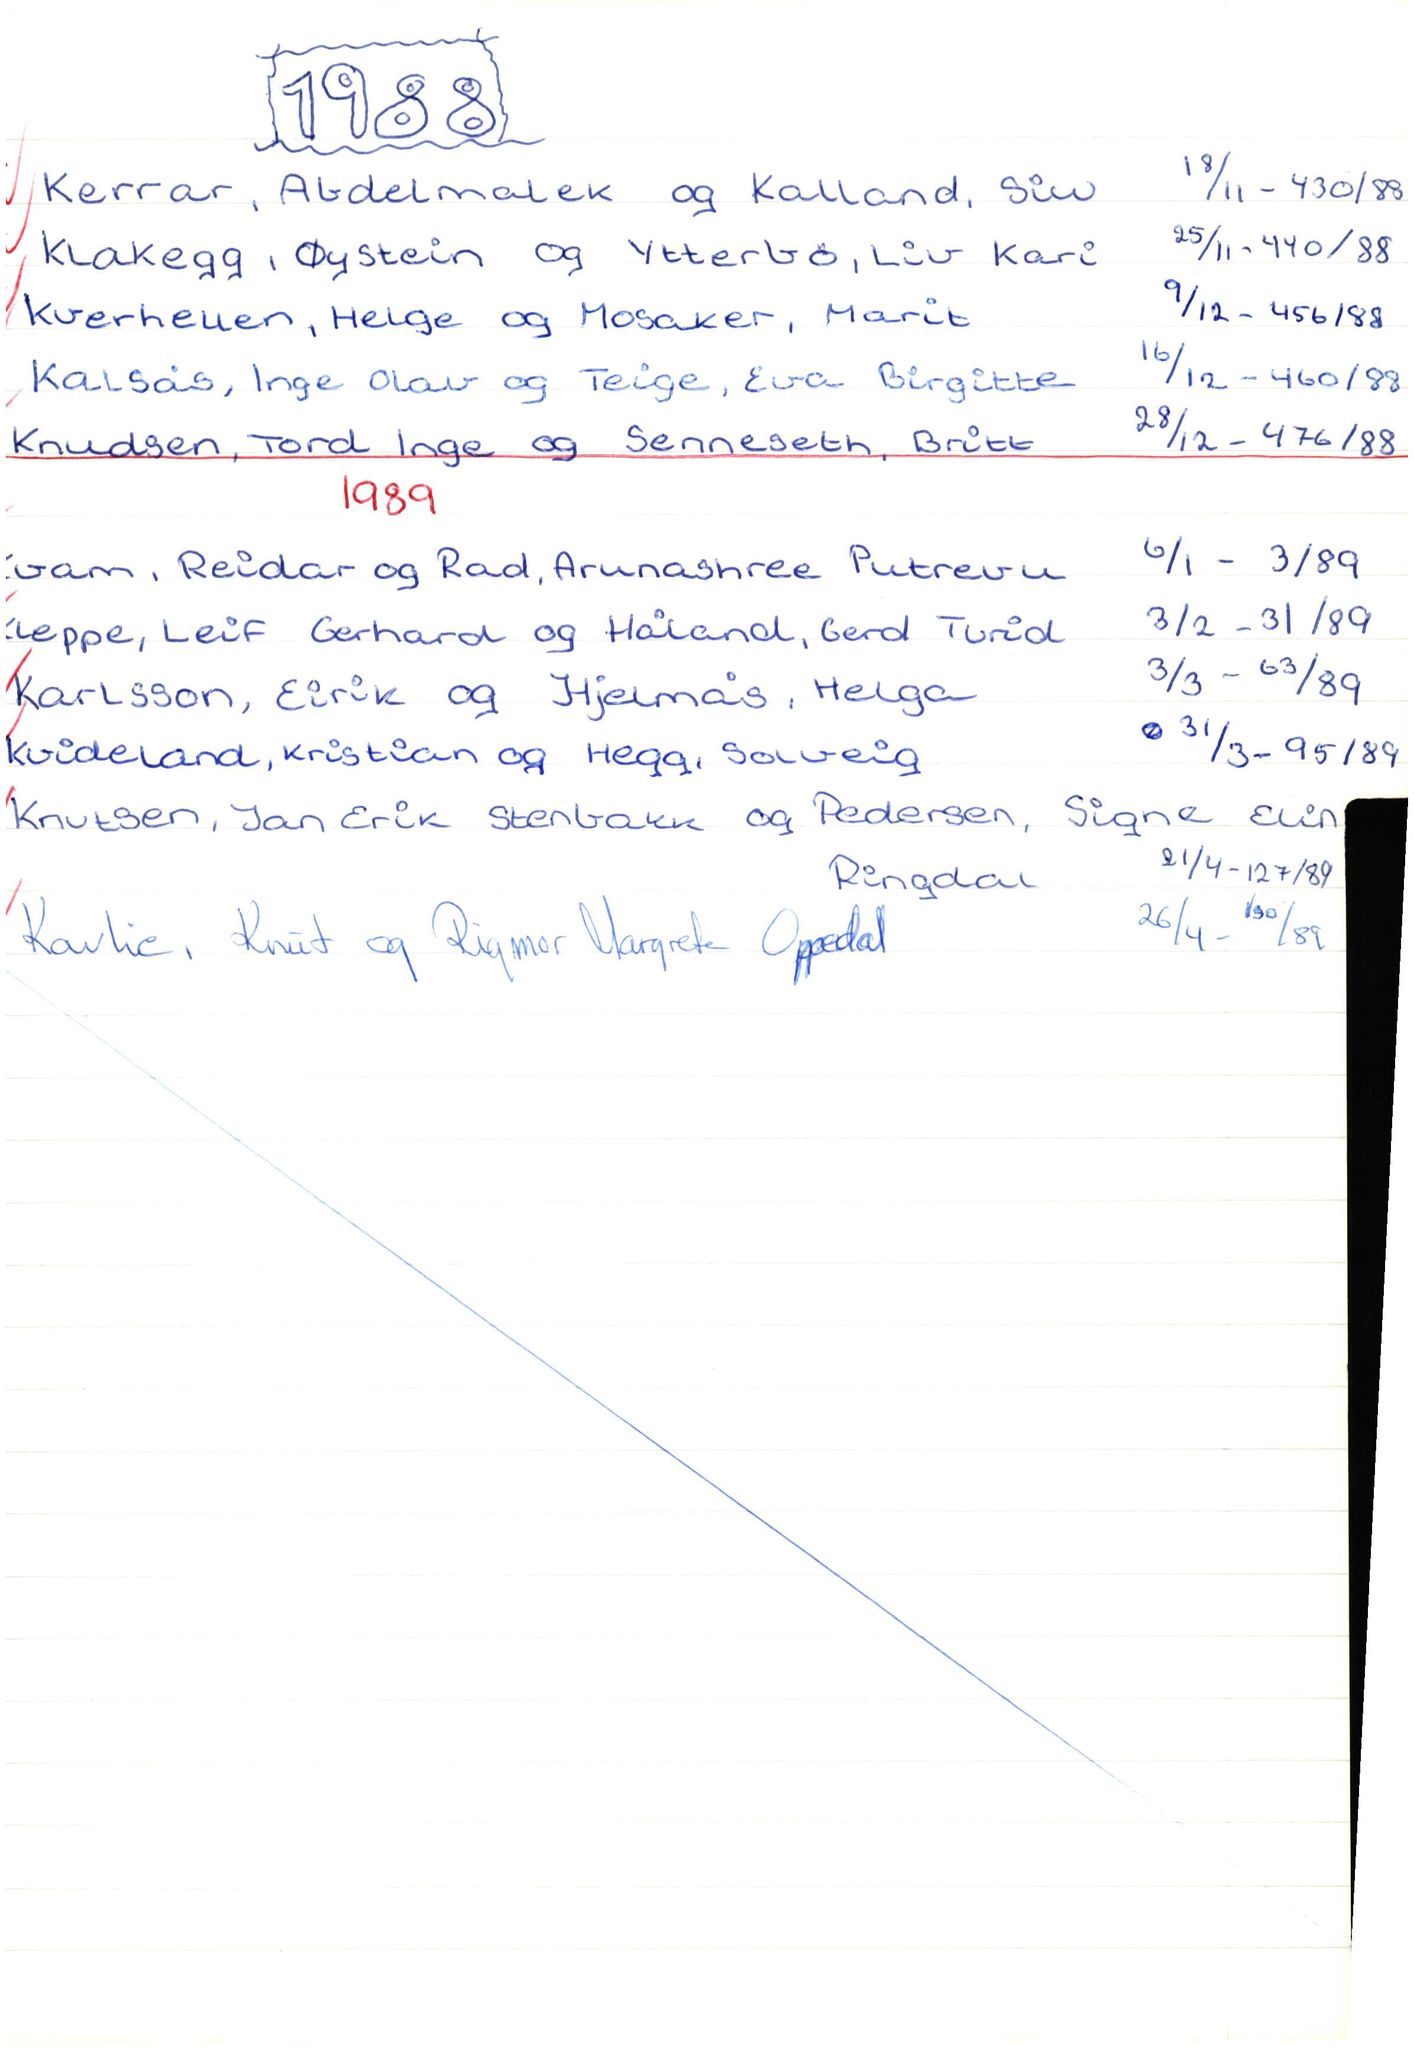 1988
Kerrar, Abdelmalek og Kalland, Siw 18/11 - 430/88
Klakegg, Øystein og Ytterbø, Liv Kari 25/11 - 440/88
Kverhellen, Helge og Mosaker, Marit 9/12 - 456/88
Kalsås, Inge Olav og Teige, Eva Birgitte 16/12 - 460/88
Knudsen, Tord Inge og Senneseth, Britt 28/12 - 476/88
1989
Kvam, Reidar og Rad, Arunashree Putrevu 6/1 - 3/89
Kleppe, Leif Gerhard og Håland, Gerd Turid 3/2 - 31/89
Karlsson, Eirik og Hjelmås, Helga 3/3 - 63/89
Kvideland, Kristian og Hegg, Solveig 31/3 - 95/89
Knutsen, Jan Erik Stenbakk og Pedersen, Signe Elin
Ringdal 21/4 - 127/89
Kavlie, Knut og Rigmor Margrete Oppedal 26/4 - 130/89